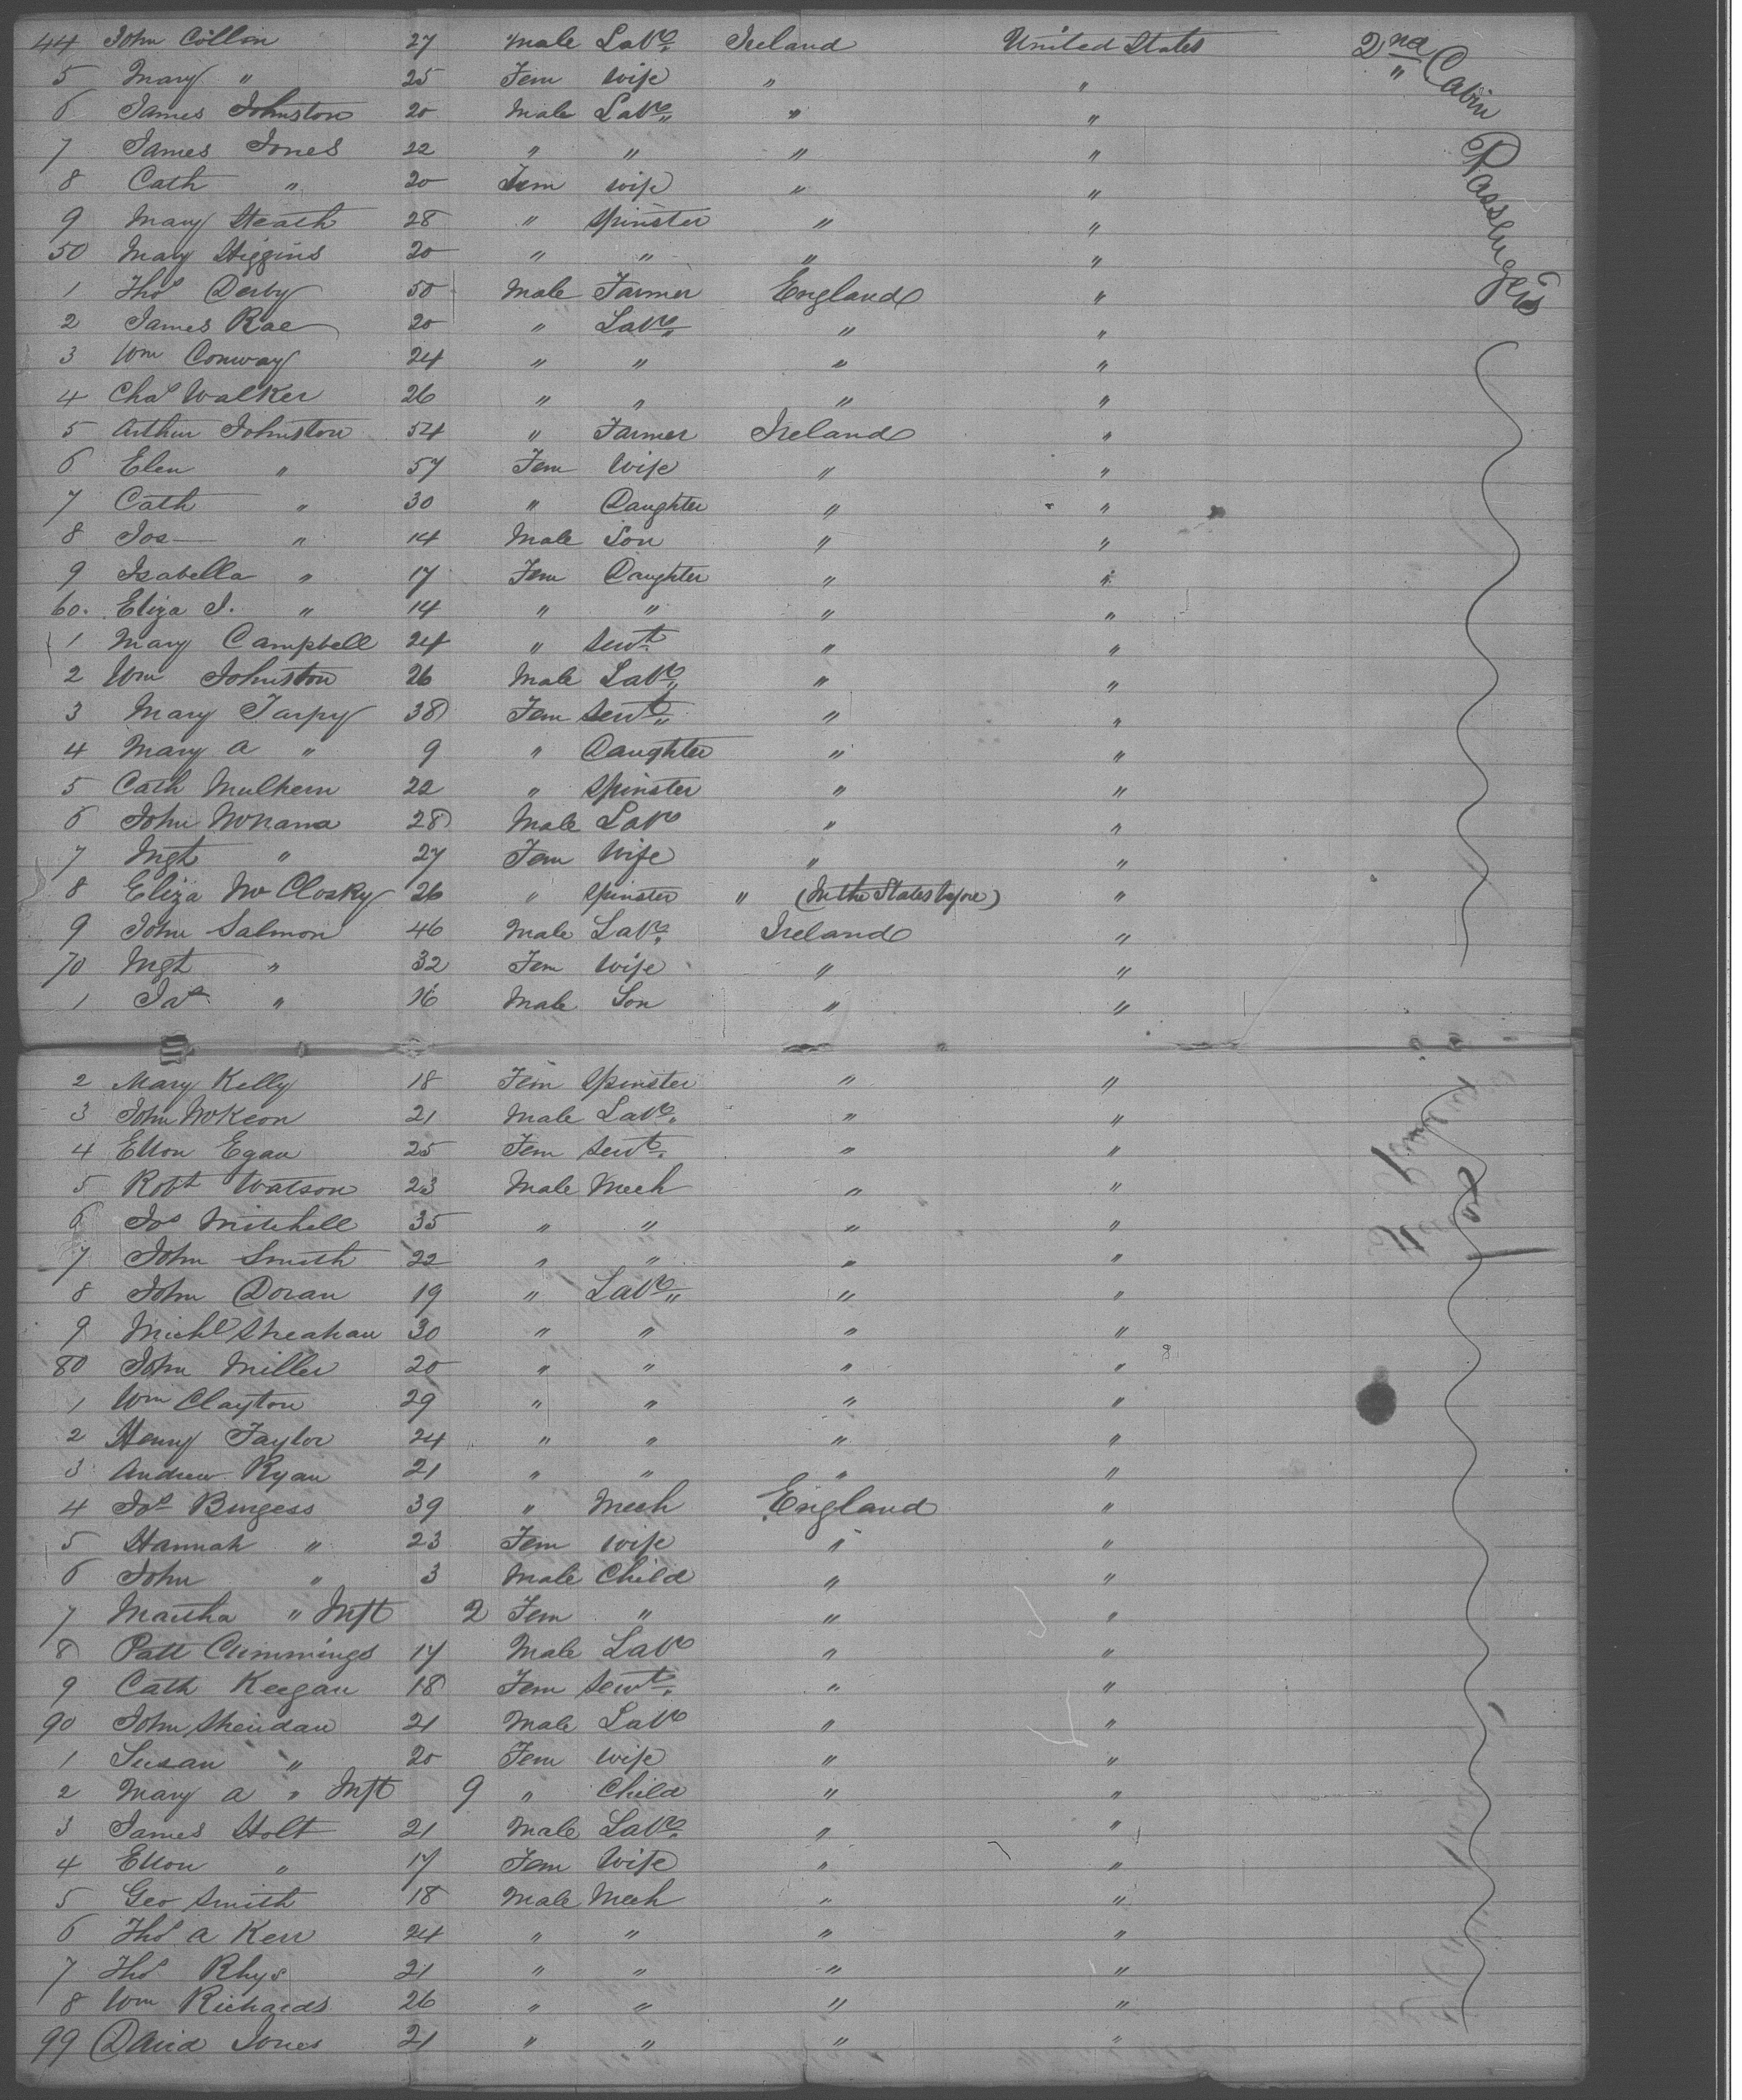 44 John Collin 27 Male Labr. Ireland United States 2nd Cabin Passengers
5 Mary " 25 Fem Wife " " "
6 James Johnston 20 Male Labr " "
7 James Jones 22 " " " "
8 Cath " 20 Fem wife " "
9 Mary Heath 28 " Spinster " "
50 Mary Higgins 20 " " " "
1 Thos Derby 50 Male Farmer England "
2 James Rae 20 " Labr " "
3 Wm Conway 24 " " " "
4 Chas Walker 26 " " " "
5 Arthur Johnston 54 " Farmer Ireland "
6 Elen " 57 Fem Wife " "
7 Cath " 30 " Daughter " "
8 Jos " 14 Male Son " "
9 Isabella " 17 Fem Daughter " "
60. Eliza J. " 14 " " " "
1 Mary Campbell 24 " Servt. " "
2 Wm Johnston 26 Male Labr " "
3 Mary Tarpy 38 Fem Servt " "
4 Mary A " 9 " Daughter " "
5 Cath Mulhern 22 " Spinster " "
6 John 28 Male Labr " "
7 Mgt " 27 Fem Wife " "
8 Eliza McClosky 26 " Spinster " (In the States before) "
9 John Salmon 46 Male Labr. Ireland "
70 Mgt " 32 Fem Wife " "
1 Jas " 16 Male Son " "
2 Mary Kelly 18 Fem Spinster " "
3 John McKeon 21 Male Labr. " "
4 Ellen Egan 25 Fem Servt. " "
5 Robt Watson 23 Male Mech " "
6 Jos Mitchell 35 " " " "
7 John Smith 22 " " " "
8 John Doran 19 " Labr " "
9 Michl Sheahan 30 " " " "
80 John Miller 20 " " " "
1 Wm Clayton 29 " " " "
2 Henry Taylor 24 " " " "
3 Andrew Ryan 21 " " " "
4 Jos Burgess 39 " Mech England "
5 Hannah " 23 Fem wife " "
6 John " 3 Male Child " "
7 Martha " Inft 2 Fem " " "
8 Patt Cummings 17 Male Labr " "
9 Cath Keegan 18 Fem Servt. " "
90 John Sheridan 21 Male Labr " "
1 Susan " 20 Fem wife " "
2 Mary A " Inft 9 " Child " "
3 James Holt 21 Male Labr. " "
4 Ellen " 17 Fem Wife " "
5 Geo Smith 18 Male Mech " "
6 Thos A Kerr 24 " " " "
7 Thos Rhys 21 " " " "
8 Wm Richards 26 " " " "
99 David Jones 21 " " " "